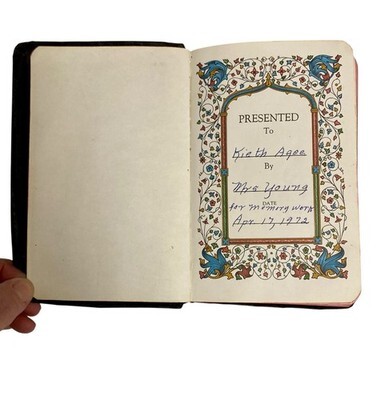 PRESENTED
To
Kieth Agee
By
Mrs Young
DATE
for memory work
Apr. 17, 1972